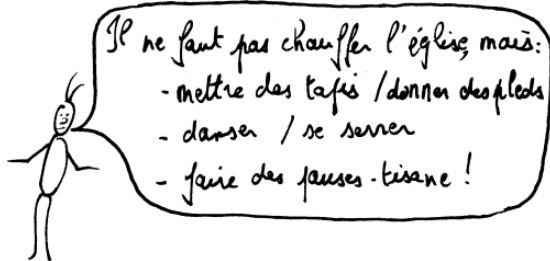 Il ne faut pas chauffer l'église, mais:
- mettre des tapis / donner des pleds
- danser / se serrer
- faire des pauses-tisane !